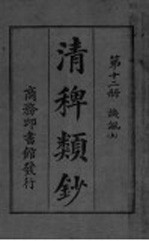 第十二册
清稗類鈔
商務印書館發行